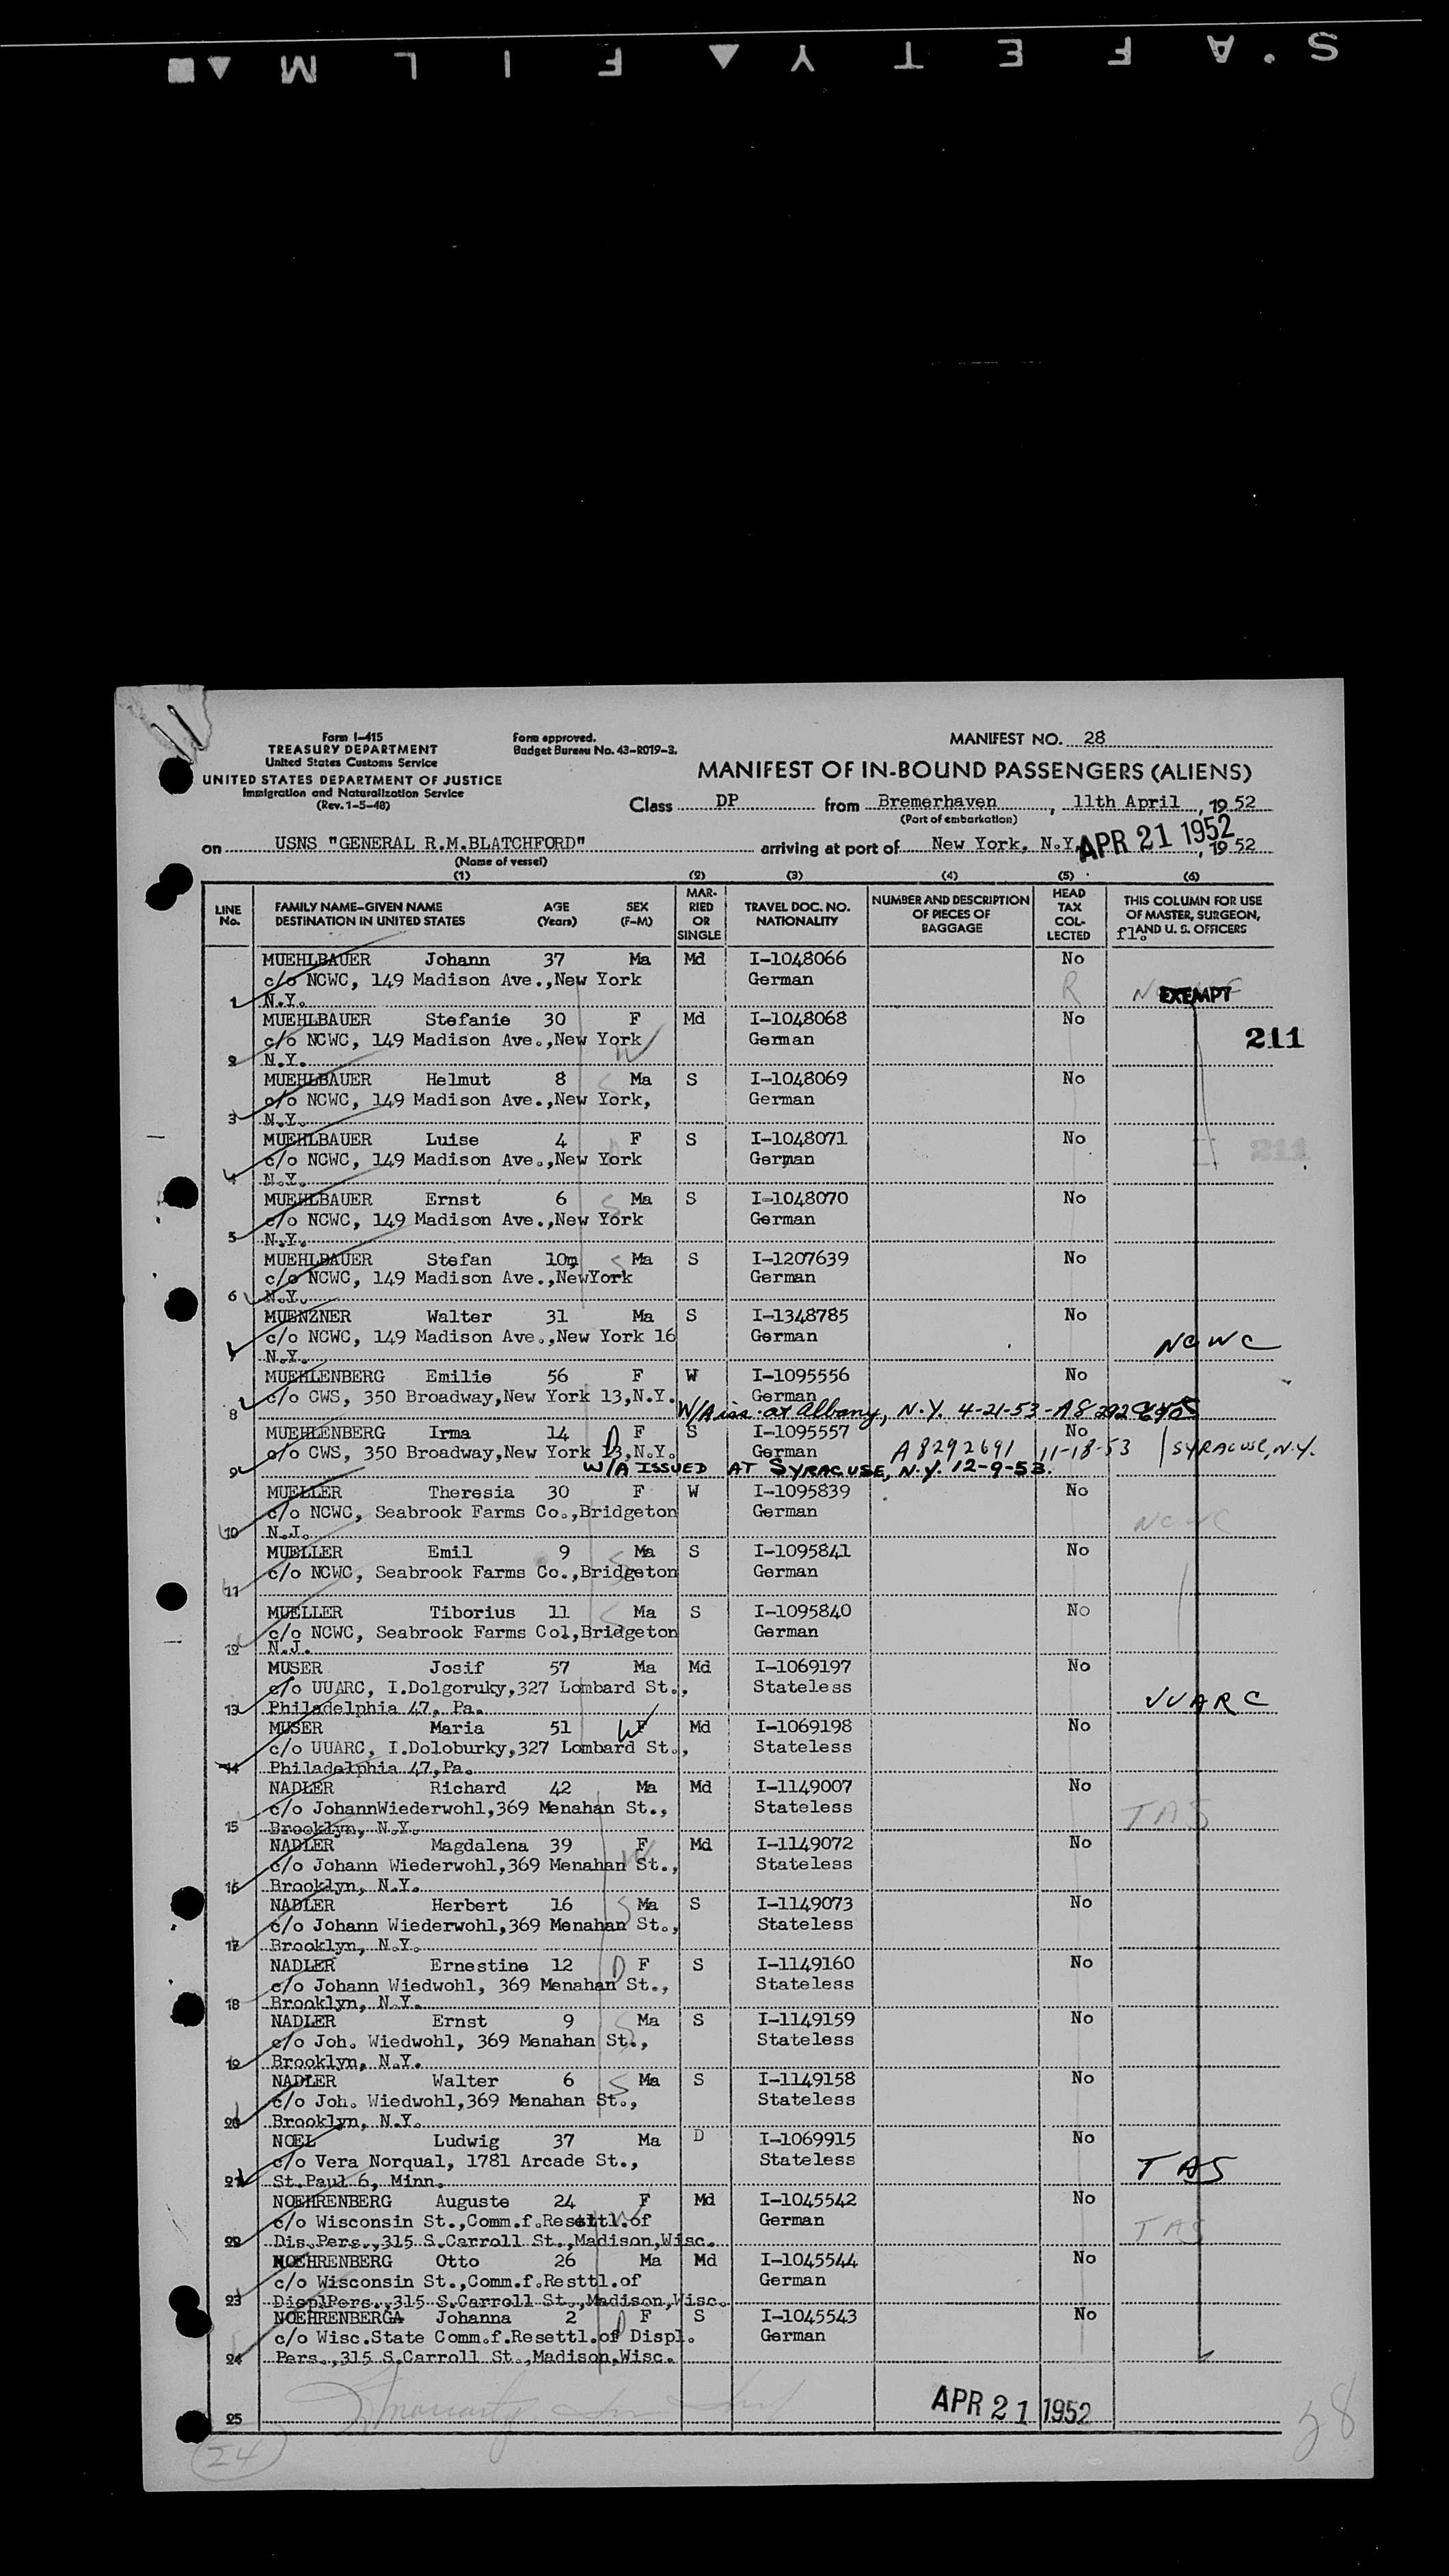 S'AFETY▲FILM▲■
Form I-415
TREASURY DEPARTMENT
United States Customs Service
UNITED STATES DEPARTMENT OF JUSTICE
Immigration and Naturalization Service
(Rev. 1-5-48)
Form approved.
Budget Bureau No. 43-R019-3.
MANIFEST NO. 28
MANIFEST OF IN-BOUND PASSENGERS (ALIENS)
Class DP from Bremerhaven, 11th April, 19 52
(Port of embarkation)
on USNS "GENERAL R.M.BLATCHFORD" arriving at port of New York, N.Y. APR 21 1952, 19 52
(Name of vessel)
(1) (2) (3) (4) (5) (6)
LINE No. FAMILY NAME-GIVEN NAME DESTINATION IN UNITED STATES AGE (Years) SEX (F-M) MARRIED OR SINGLE TRAVEL DOC. NO. NATIONALITY NUMBER AND DESCRIPTION OF PIECES OF BAGGAGE HEAD TAX COLLECTED THIS COLUMN FOR USE OF MASTER, SURGEON, AND U. S. OFFICERS
fl.
MUEHLBAUER Johann 37 Ma Md I-1048066 No
c/o NCWC, 149 Madison Ave.,New York German
1 N.Y. R EXEMPT
MUEHLBAUER Stefanie 30 F Md I-1048068 No
c/o NCWC, 149 Madison Ave.,New York W German 211
2 N.Y.
MUEHLBAUER Helmut 8 S Ma S I-1048069 No
c/o NCWC, 149 Madison Ave.,New York, German
3 N.Y.
MUEHLBAUER Luise 4 F S I-1048071 No
c/o NCWC, 149 Madison Ave.,New York German 211
4 N.Y.
MUEHLBAUER Ernst 6 S Ma S I-1048070 No
c/o NCWC, 149 Madison Ave.,New York German
5 N.Y.
MUEHLBAUER Stefan 10m S Ma S I-1207639 No
c/o NCWC, 149 Madison Ave.,NewYork German
6 N.Y.
MUENZNER Walter 31 Ma S I-1348785 No
c/o NCWC, 149 Madison Ave.,New York 16 German NCWC
7 N.Y.
MUEHLENBERG Emilie 56 F W I-1095556 No
c/o CWS, 350 Broadway,New York 13,N.Y. German
8 W/A iss. at Albany, N.Y. 4-21-53-A8
MUEHLENBERG Irma 14 D F S I-1095557 No
c/o CWS, 350 Broadway,New York 13,N.Y. German A8292691 11-18-53 / SYRACUSE, N.Y.
9 W/A ISSUED AT SYRACUSE, N.Y. 12-9-53.
MUELLER Theresia 30 F W I-1095839 No
c/o NCWC, Seabrook Farms Co.,Bridgeton German NCWC
10 N.J.
MUELLER Emil 9 S Ma S I-1095841 No
c/o NCWC, Seabrook Farms Co.,Bridgeton German
11
MUELLER Tiborius 11 S Ma S I-1095840 No
c/o NCWC, Seabrook Farms Col,Bridgeton German
12 N.J.
MUSER Josif 57 Ma Md I-1069197 No
c/o UUARC, I.Dolgoruky,327 Lombard St., Stateless UUARC
13 Philadelphia 47, Pa.
MUSER Maria 51 W F Md I-1069198 No
c/o UUARC, I.Doloburky,327 Lombard St., Stateless
14 Philadelphia 47,Pa.
NADLER Richard 42 Ma Md I-1149007 No
c/o JohannWiederwohl,369 Menahan St., Stateless TAS
15 Brooklyn, N.Y.
NADLER Magdalena 39 F Md I-1149072 No
c/o Johann Wiederwohl,369 Menahan St., W Stateless
16 Brooklyn, N.Y.
NADLER Herbert 16 S Ma S I-1149073 No
c/o Johann Wiederwohl,369 Menahan St., Stateless
17 Brooklyn, N.Y.
NADLER Ernestine 12 D F S I-1149160 No
c/o Johann Wiedwohl, 369 Menahan St., Stateless
18 Brooklyn, N.Y.
NADLER Ernst 9 S Ma S I-1149159 No
c/o Joh. Wiedwohl, 369 Menahan St., Stateless
19 Brooklyn, N.Y.
NADLER Walter 6 S Ma S I-1149158 No
c/o Joh. Wiedwohl,369 Menahan St., Stateless
20 Brooklyn, N.Y.
NOEL Ludwig 37 Ma D I-1069915 No
c/o Vera Norqual, 1781 Arcade St., Stateless TAS
21 St.Paul 6, Minn.
NOEHRENBERG Auguste 24 F Md I-1045542 No
c/o Wisconsin St.,Comm.f.Resettl.of W German TAS
22 Dis.Pers.,315 S.Carroll St.,Madison,Wisc.
NOEHRENBERG Otto 26 Ma Md I-1045544 No
c/o Wisconsin St.,Comm.f.Resttl.of German
23 DisplPers.,315 S.Carroll St.,Madison,Wisc.
NOEHRENBERGA Johanna 2 D F S I-1045543 No
c/o Wisc.State Comm.f.Resettl.of Displ. German
24 Pers.,315 S.Carroll St.,Madison,Wisc.
APR 21 1952
25
24